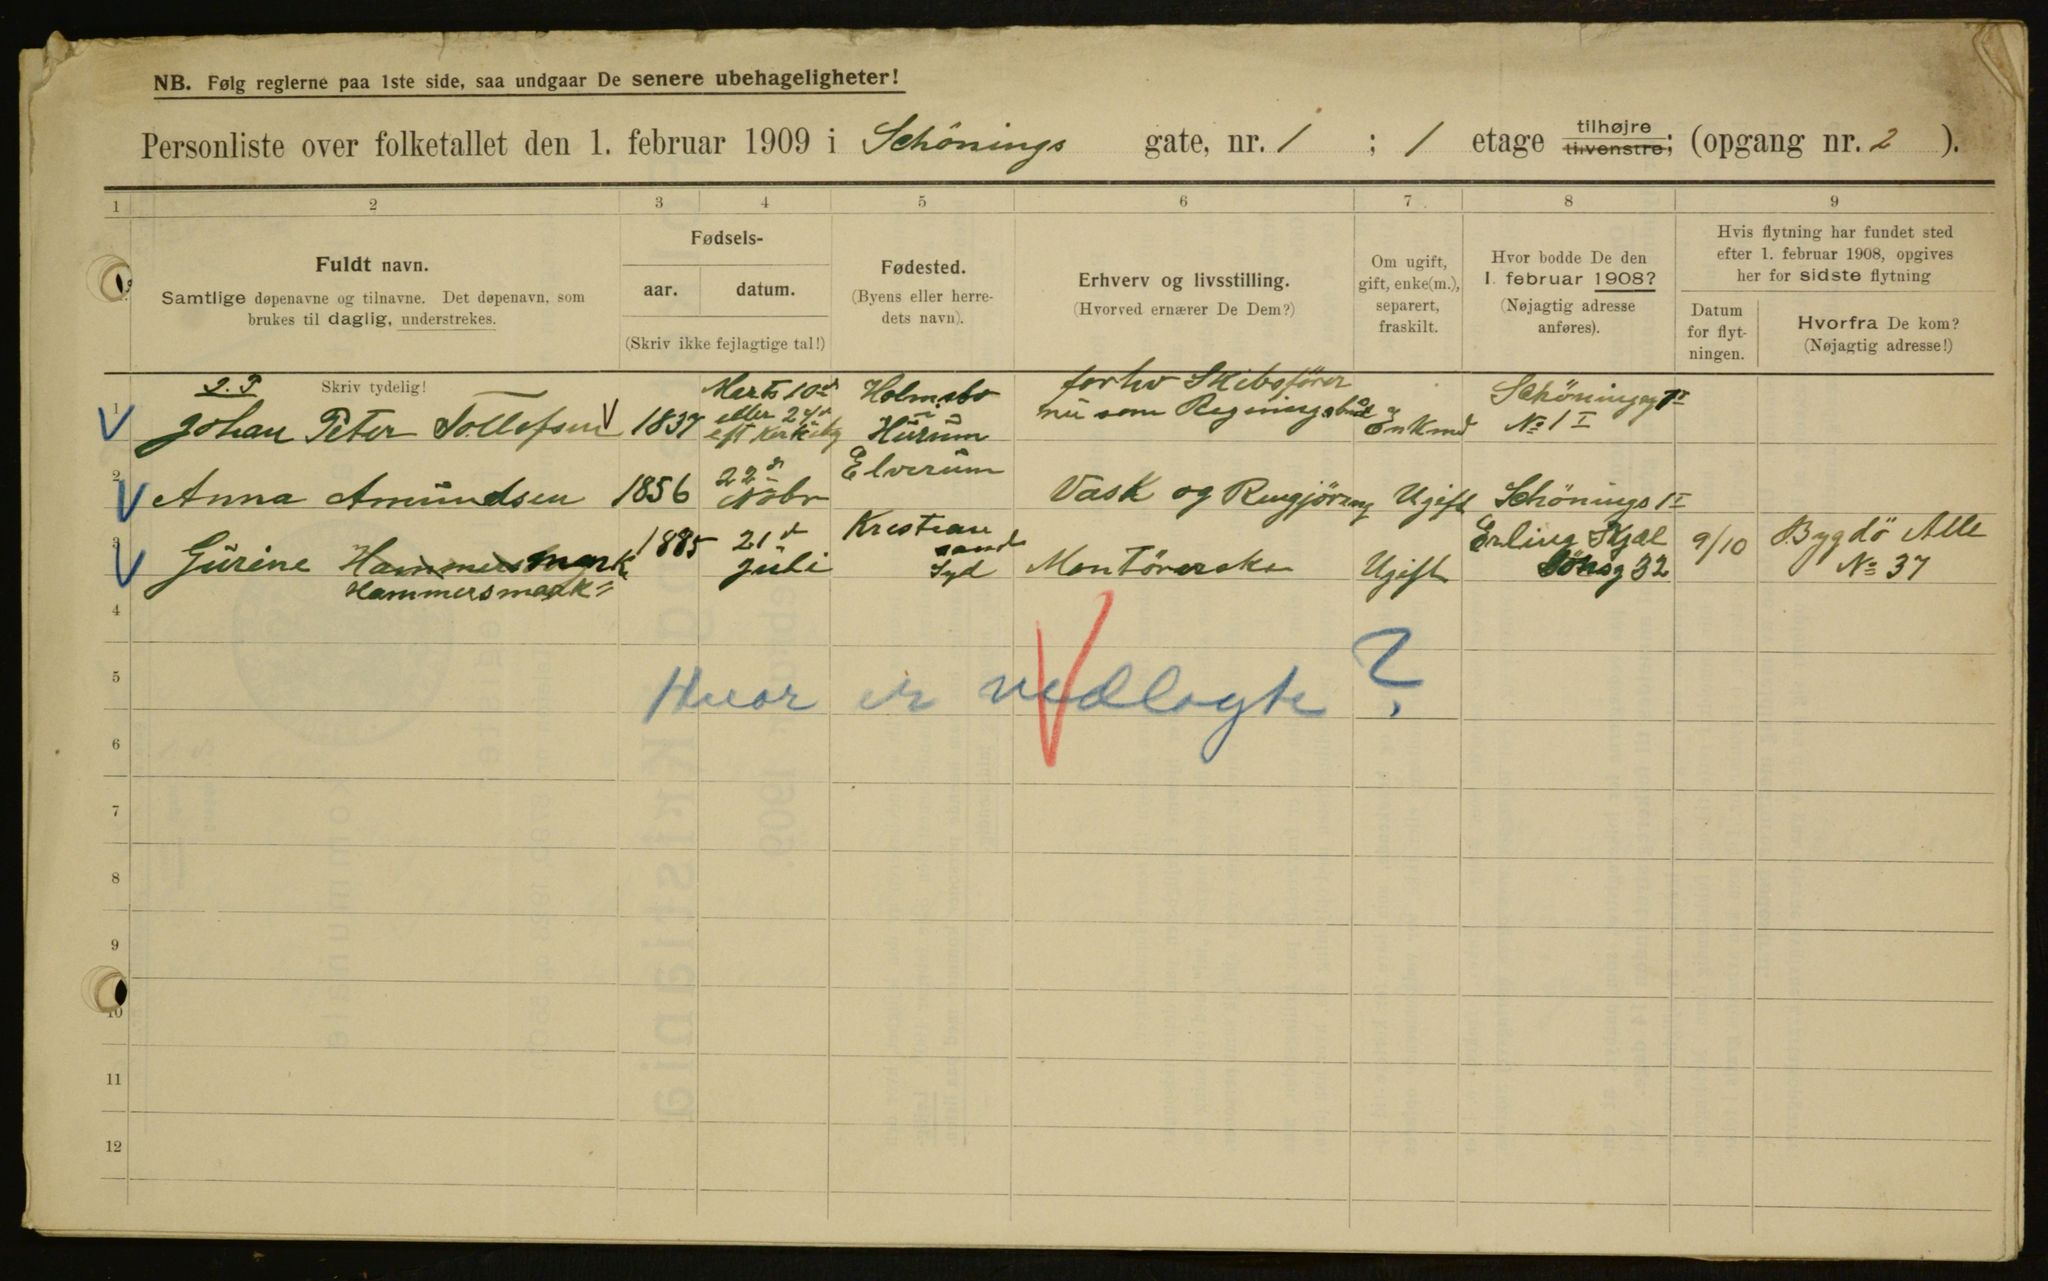 NB. Følg reglerne paa 1ste side, saa undgaar De senere ubehageligheter!
Personliste over folketallet den 1. februar 1909 i Schönings gate, nr. 1 ; 1 etage tilhøjre tilvenstre; (opgang nr. 2 ).
1 2 3 4 5 6 7 8 9
Fuldt navn.
Samtlige døpenavne og tilnavne. Det døpenavn, som
brukes til daglig, understrekes.
Skriv tydelig!
Fødsels-
aar. datum.
(Skriv ikke fejlagtige tal!)
Fødested.
(Byens eller herre-
dets navn).
Erhverv og livsstilling.
(Hvorved ernærer De Dem?)
Om ugift,
gift, enke(m.),
separert,
fraskilt.
Hvor bodde De den
1. februar 1908?
(Nøjagtig adresse
anføres).
Hvis flytning har fundet sted
efter 1. februar 1908, opgives
her for sidste flytning
Datum
for flyt-
ningen.
Hvorfra De kom?
(Nøjagtig adresse!)
1 Johan Peter Tollefsen 1837 Marts 10de eller 24de eft Kirkebg Holmsbo i Hurum forhv Skibsfører nu som Regningsbud Enkmd Schöningsg 1 II No 1 I
2 Anna Amundsen 1856 22de Nobr Elverum Vask og Rengjöring Ugift Schönings 1 I
3 Gurine Hammersmark 1885 21de Juli Kristian sand Syd Montörerske Ugift Erling Skjal sönsg 32 9/10 Bygdö Alle No 37
Hammersmark
4
5
Hvor er vedlagte ?
6
7
8
9
10
11
12